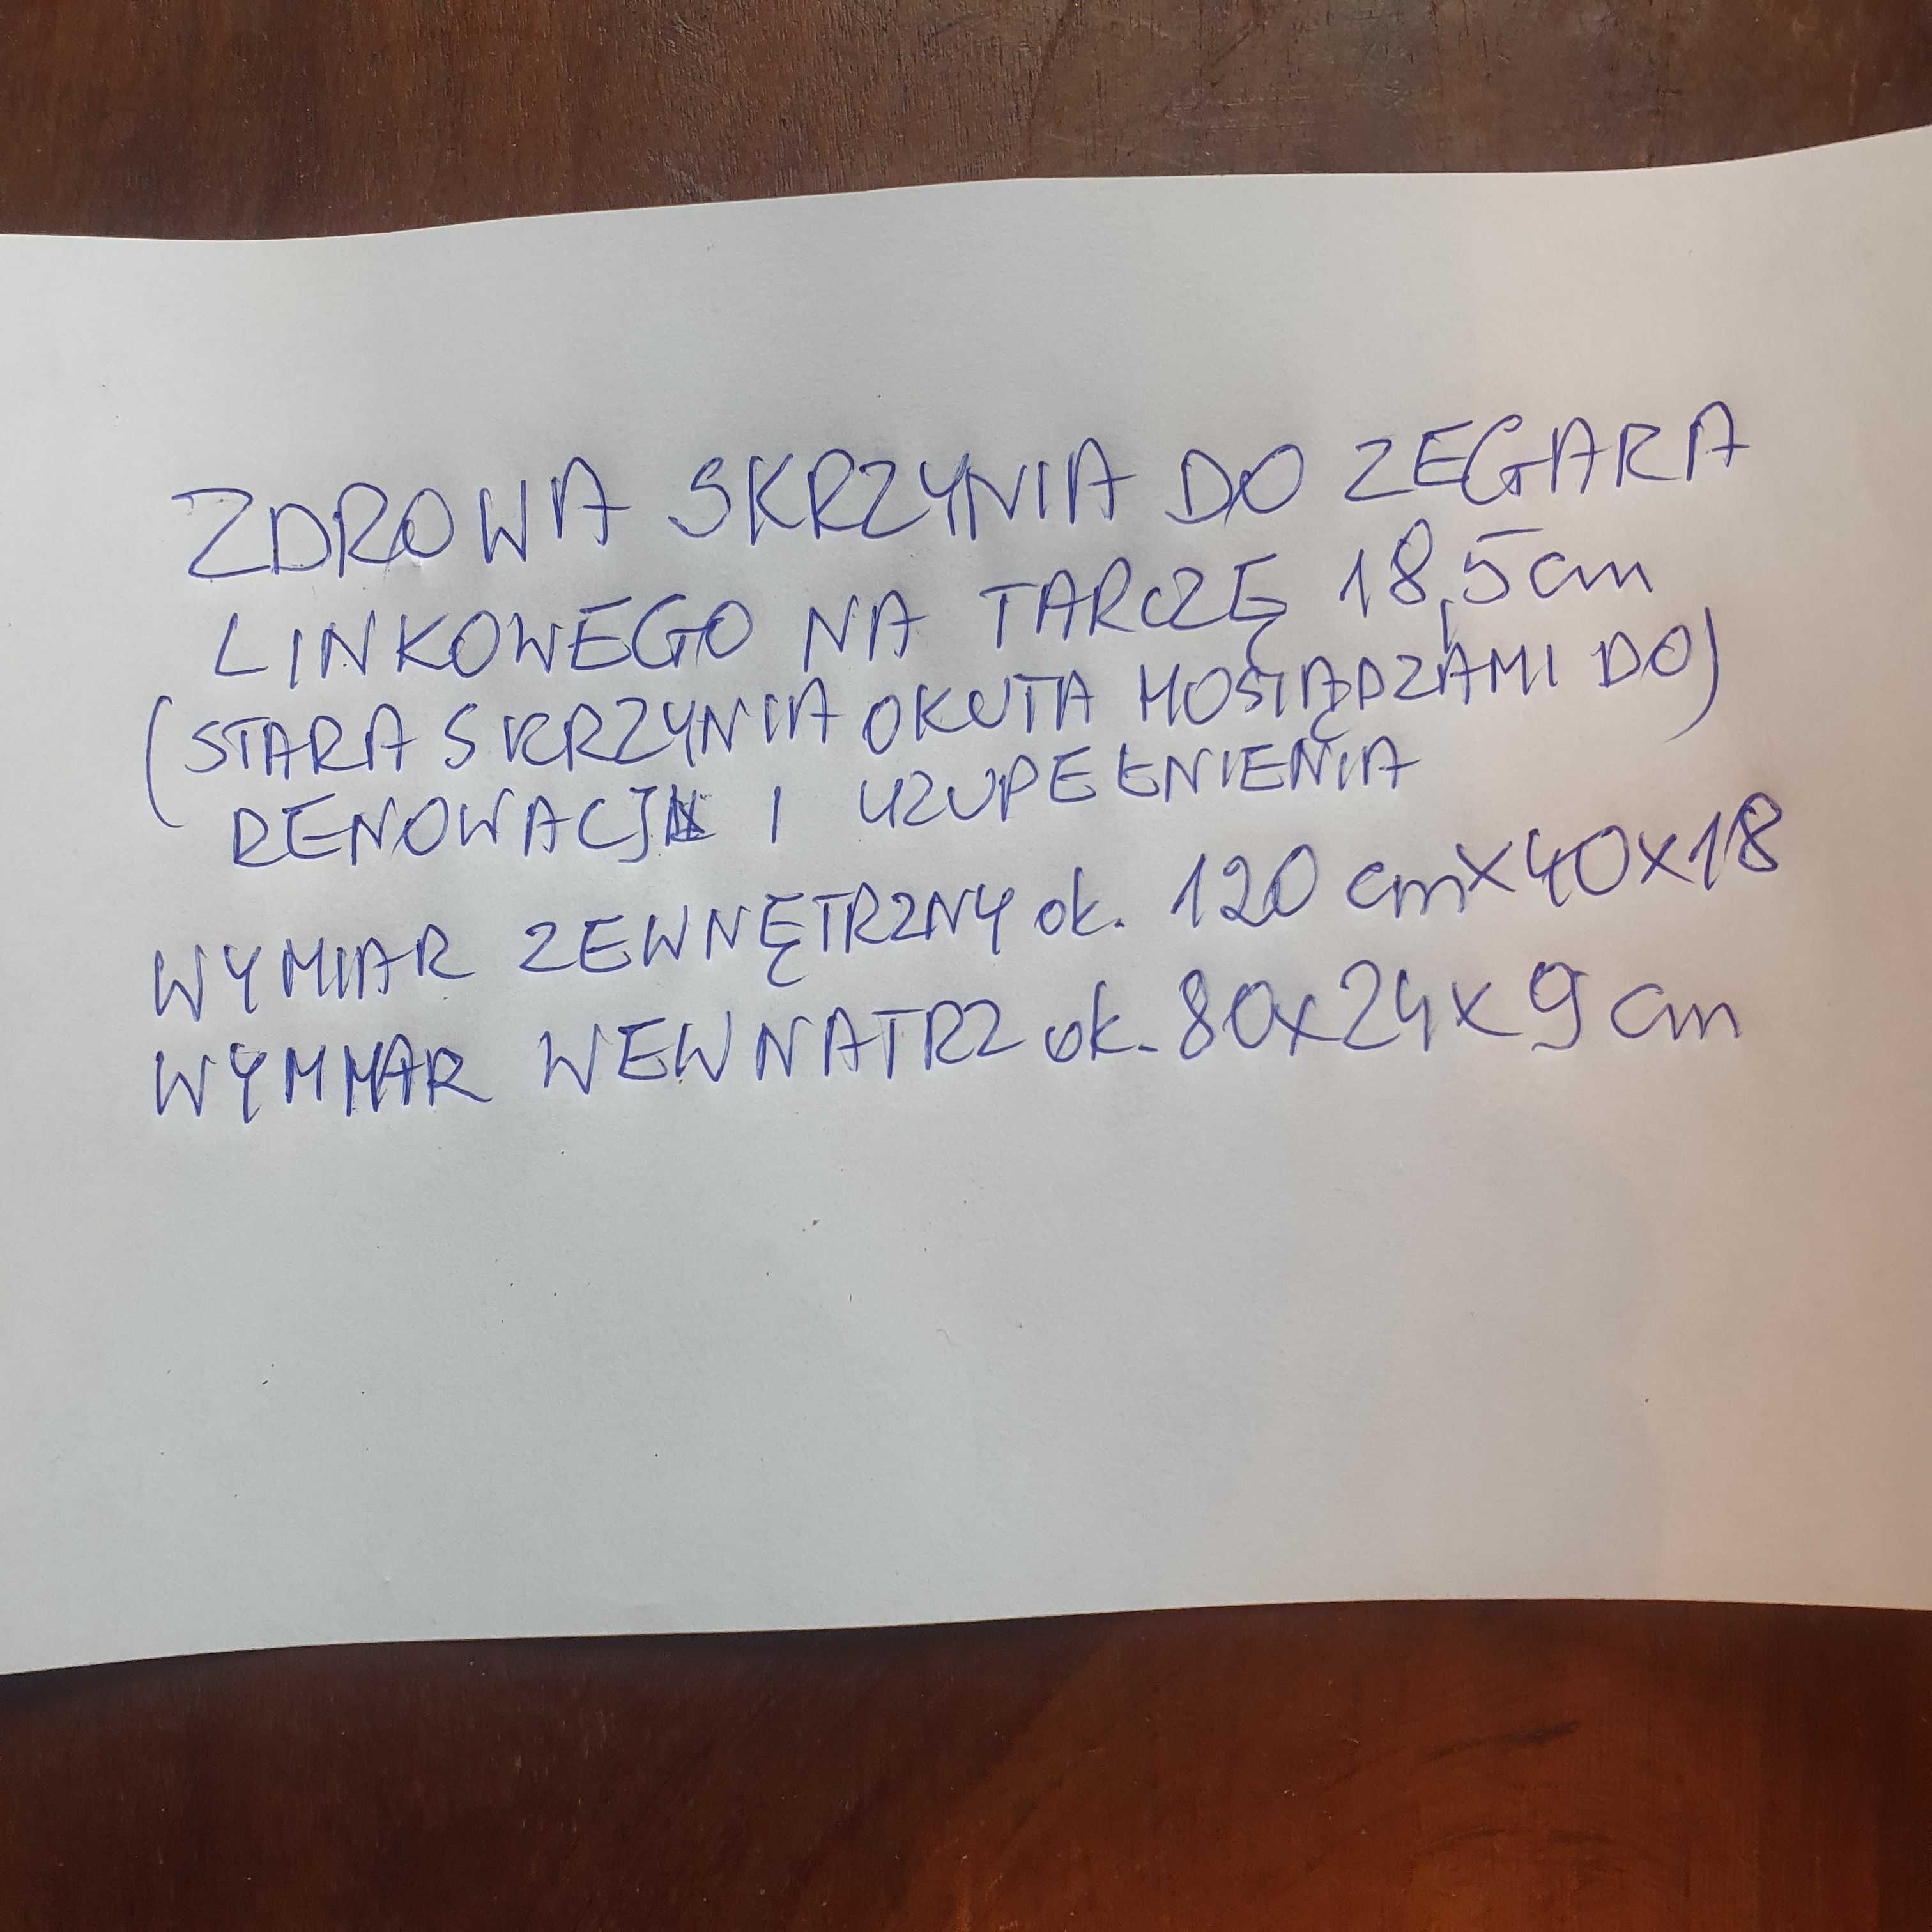 ZDROWA SKRZYNIA DO ZEGARA
LINKOWEGO NA TARCZĘ 18,5 cm
(STARA SKRZYNIA OKUTA MOSIĄDZAMI DO)
RENOWACJI I UZUPEŁNIENIA
WYMIAR ZEWNĘTRZNY ok. 120 cm x 40 x 18
WYMIAR WEWNATRZ ok. 80 x 24 x 9 cm